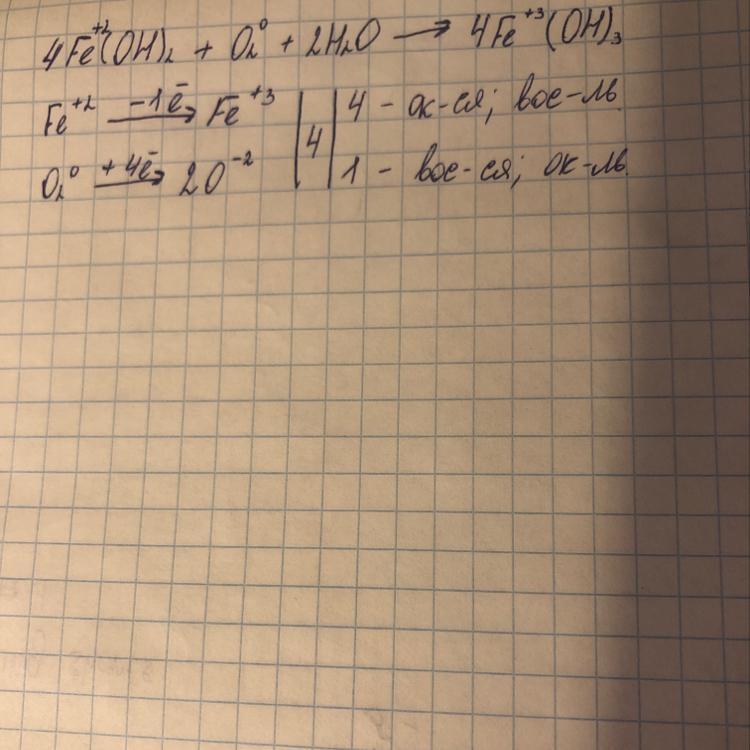 4Fe⁺²(OH)₂ + O₂⁰ + 2H₂O → 4Fe⁺³(OH)₃
Fe⁺² −1ē→ Fe⁺³ | 4 | 4 - ок-ся; вос-ль
O₂⁰ +4ē→ 2O⁻² | 1 - вос-ся; ок-ль